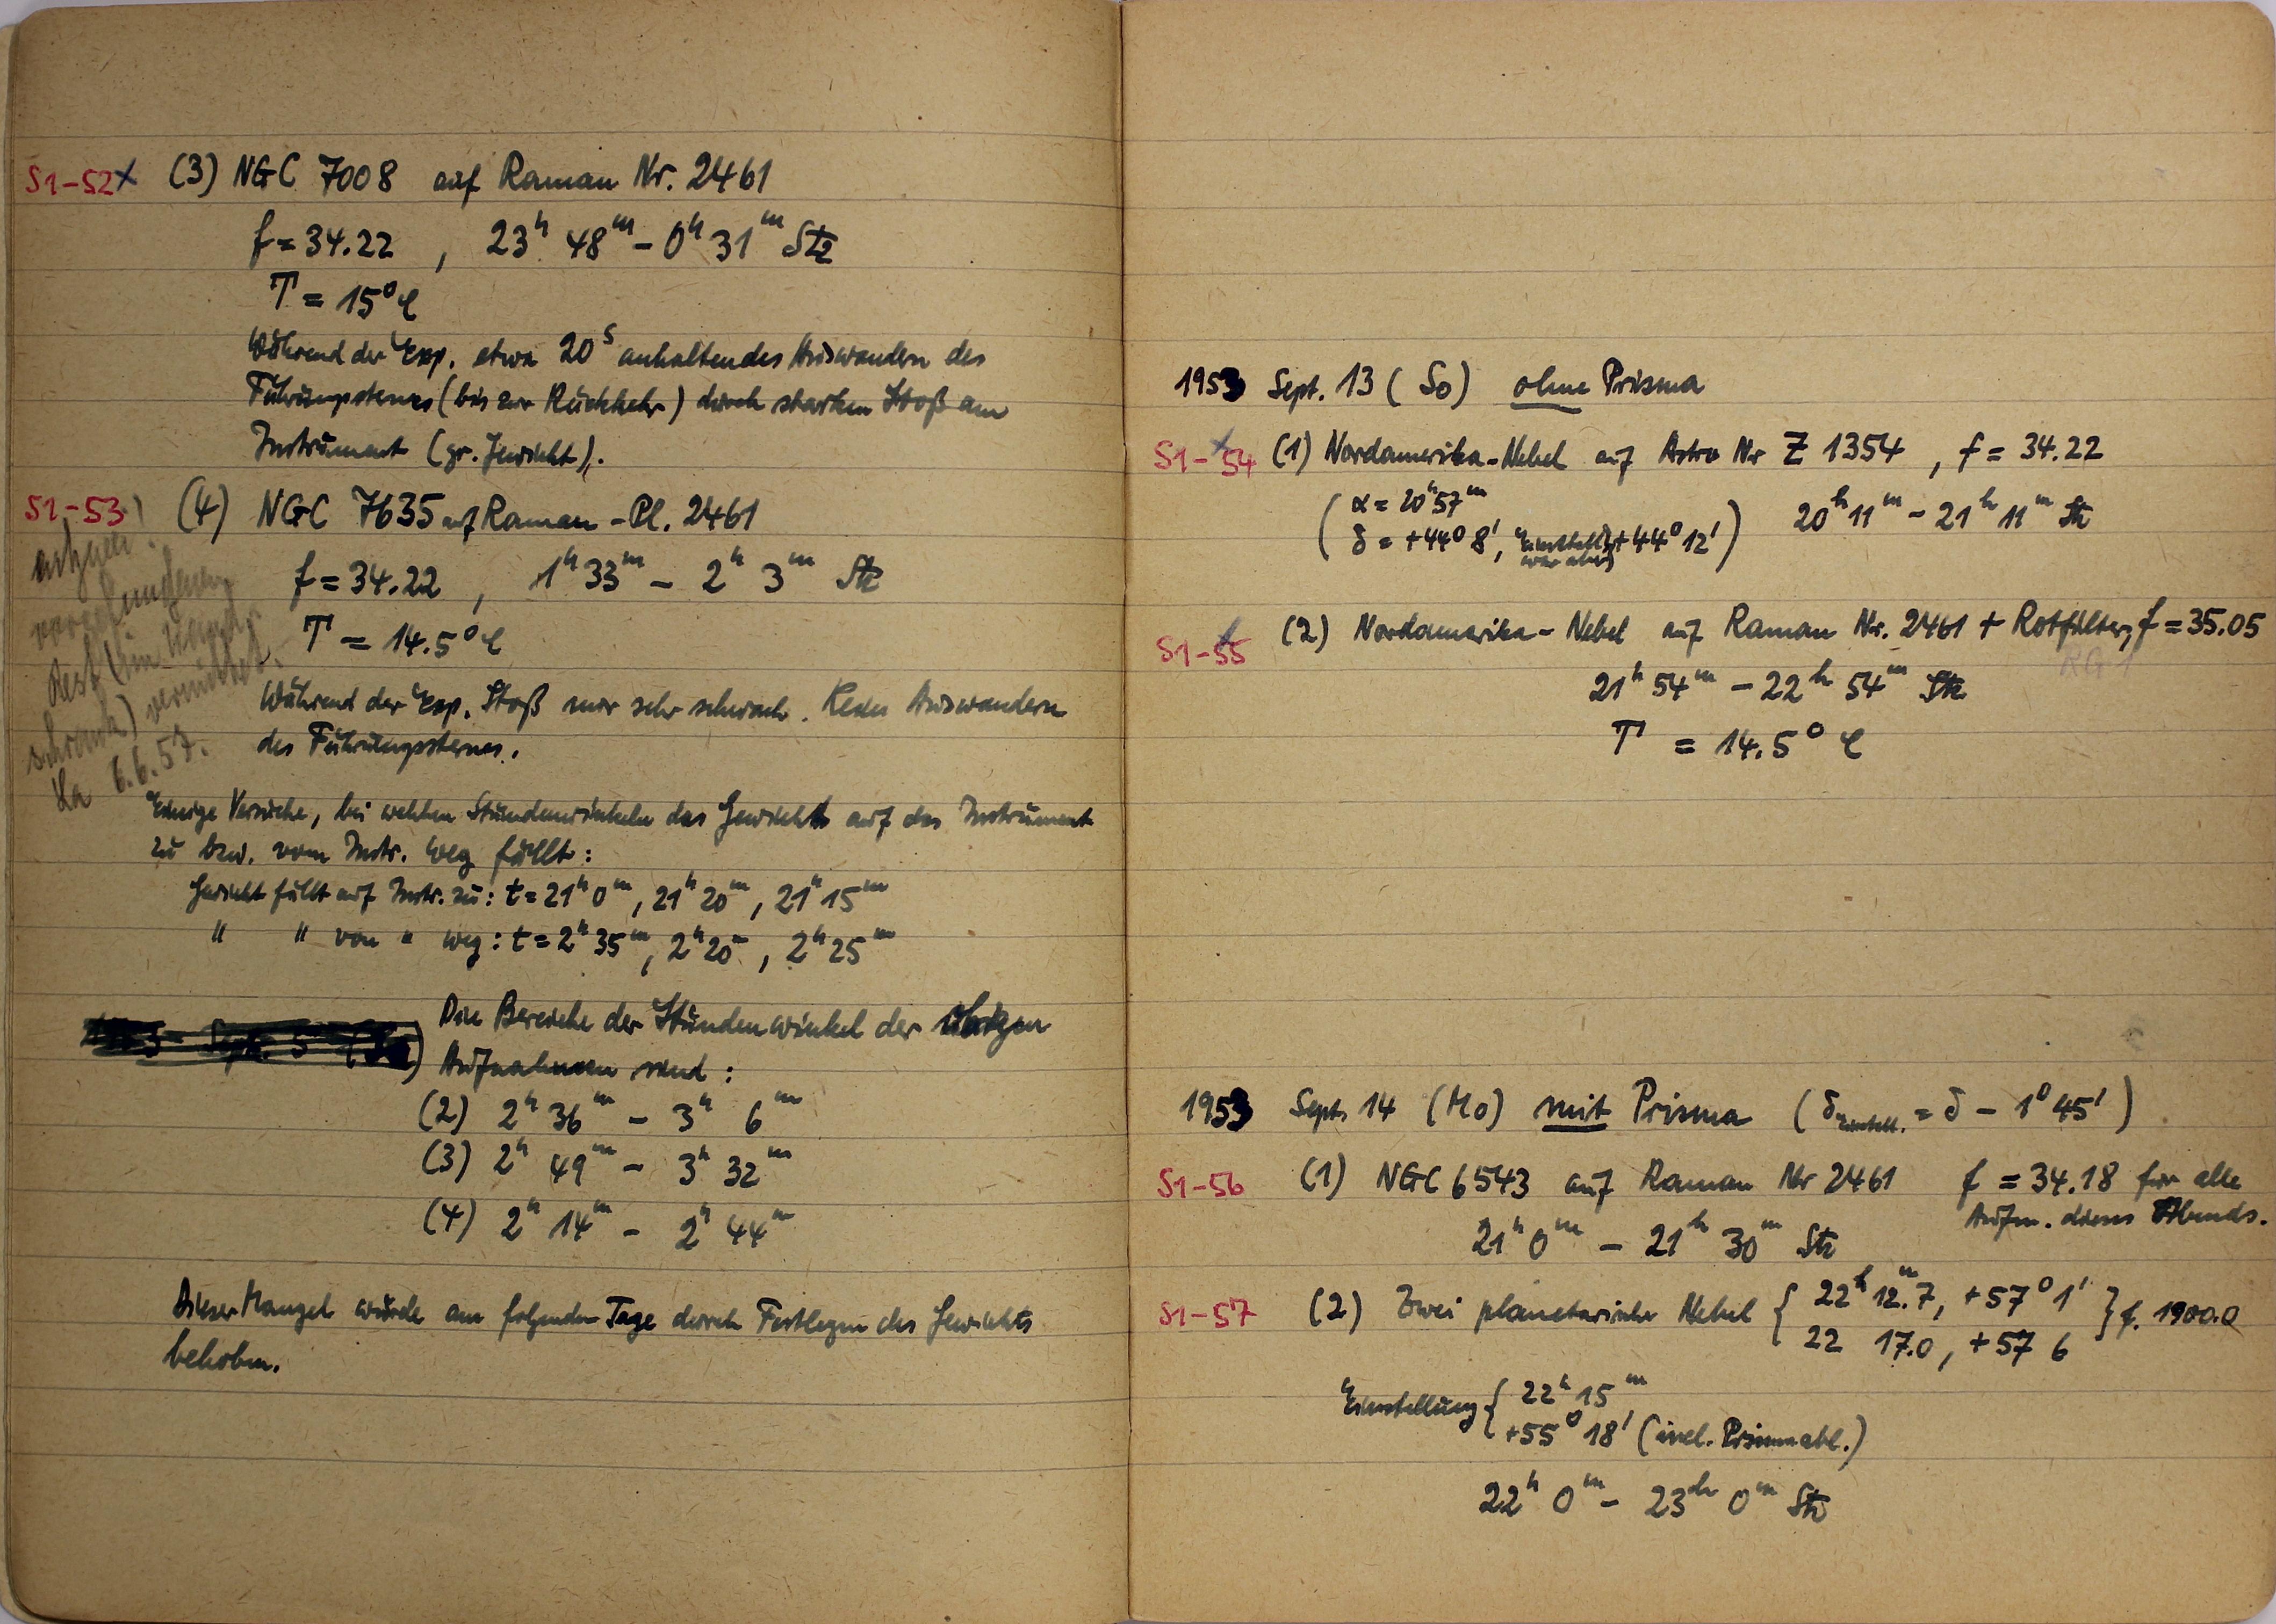 S1-52x (3) NGC 7008 auf Raman Nr. 2461
f = 34.22 , 23h 48m – 0h 31m Stz
T = 15° C
Während der Exp. etwa 20s anhaltendes Auswandern des
Führungssternes (bis zur Rückkehr) durch starken Stoß am
Instrument (gr. Gewicht).
S1-53 (4) NGC 7635 auf Raman-Pl. 2461
f = 34.22 , 1h 33m – 2h 3m Stz
T = 14.5° C
vorhandener
Rest (im Wand-
schrank) vernichtet.
6.6.57.
Während der Exp. Stoß nur sehr schwach. Kein Auswandern
des Führungssternes.
Einige Versuche, bei welchen Stundenwinkeln das Gewicht auf das Instrument
zu bzw. vom Instr. weg fällt:
Gewicht fällt auf Instr. zu: t = 21h 0m, 21h 20m, 21h 15m
" " von " weg: t = 2h 35m, 2h 20m, 2h 25m
Die Bereiche der Stundenwinkel der übrigen
Aufnahmen sind:
(2) 2h 36m – 3h 6m
(3) 2h 49m – 3h 32m
(4) 2h 14m – 2h 44m
Dieser Mangel wurde am folgenden Tage durch Festlegen des Gewichts
behoben.
1953 Sept. 13 (So) ohne Prisma
S1-54 (1) Nordamerika-Nebel auf Astro Nr Z 1354 , f = 34.22
(α = 20h 57m
δ = +44° 8', Einstell. war aber +44° 12') 20h 11m – 21h 11m Stz
S1-55 (2) Nordamerika-Nebel auf Raman Nr. 2461 + Rotfilter, f = 35.05
RG 1
21h 54m – 22h 54m Stz
T = 14.5° C
1953 Sept. 14 (Mo) mit Prisma (δEinstell. = δ – 1° 45')
S1-56 (1) NGC 6543 auf Raman Nr 2461 f = 34.18 für alle
Aufn. dieses Abends.
21h 0m – 21h 30m Stz
S1-57 (2) Zwei planetarische Nebel { 22h 12m.7, +57° 1'
22 17.0, +57 6 } f. 1900.0
Einstellung { 22h 15m
+55° 18' (incl. Prismenabl.)
22h 0m – 23h 0m Stz